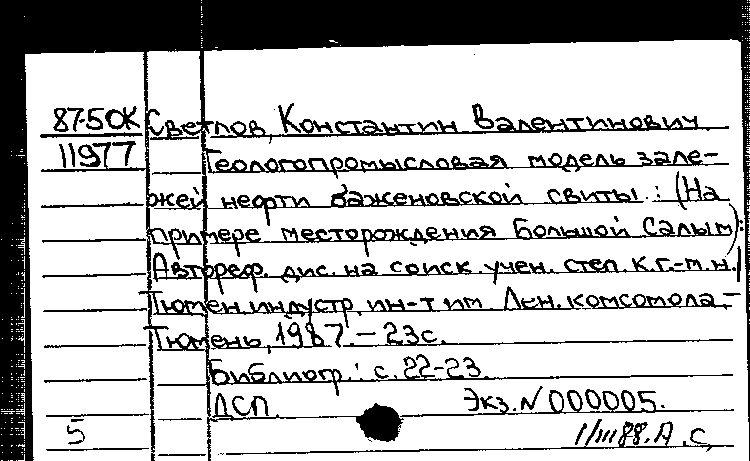 87-5ОК Светлов, Константин Валентинович.
11977 Геологопромысловая модель зале-
жей нефти баженовской свиты: (На
примере месторождения Большой Салым):
Автореф. дис. на соиск. учен. степ. к.г.-м.н./
Тюмен. индустр. ин-т им. Лен. комсомола.-
Тюмень, 1987.-23с.
Библиогр.: с. 22-23.
ДСП. Экз. N 000005.
5 1/III 88. А.С.